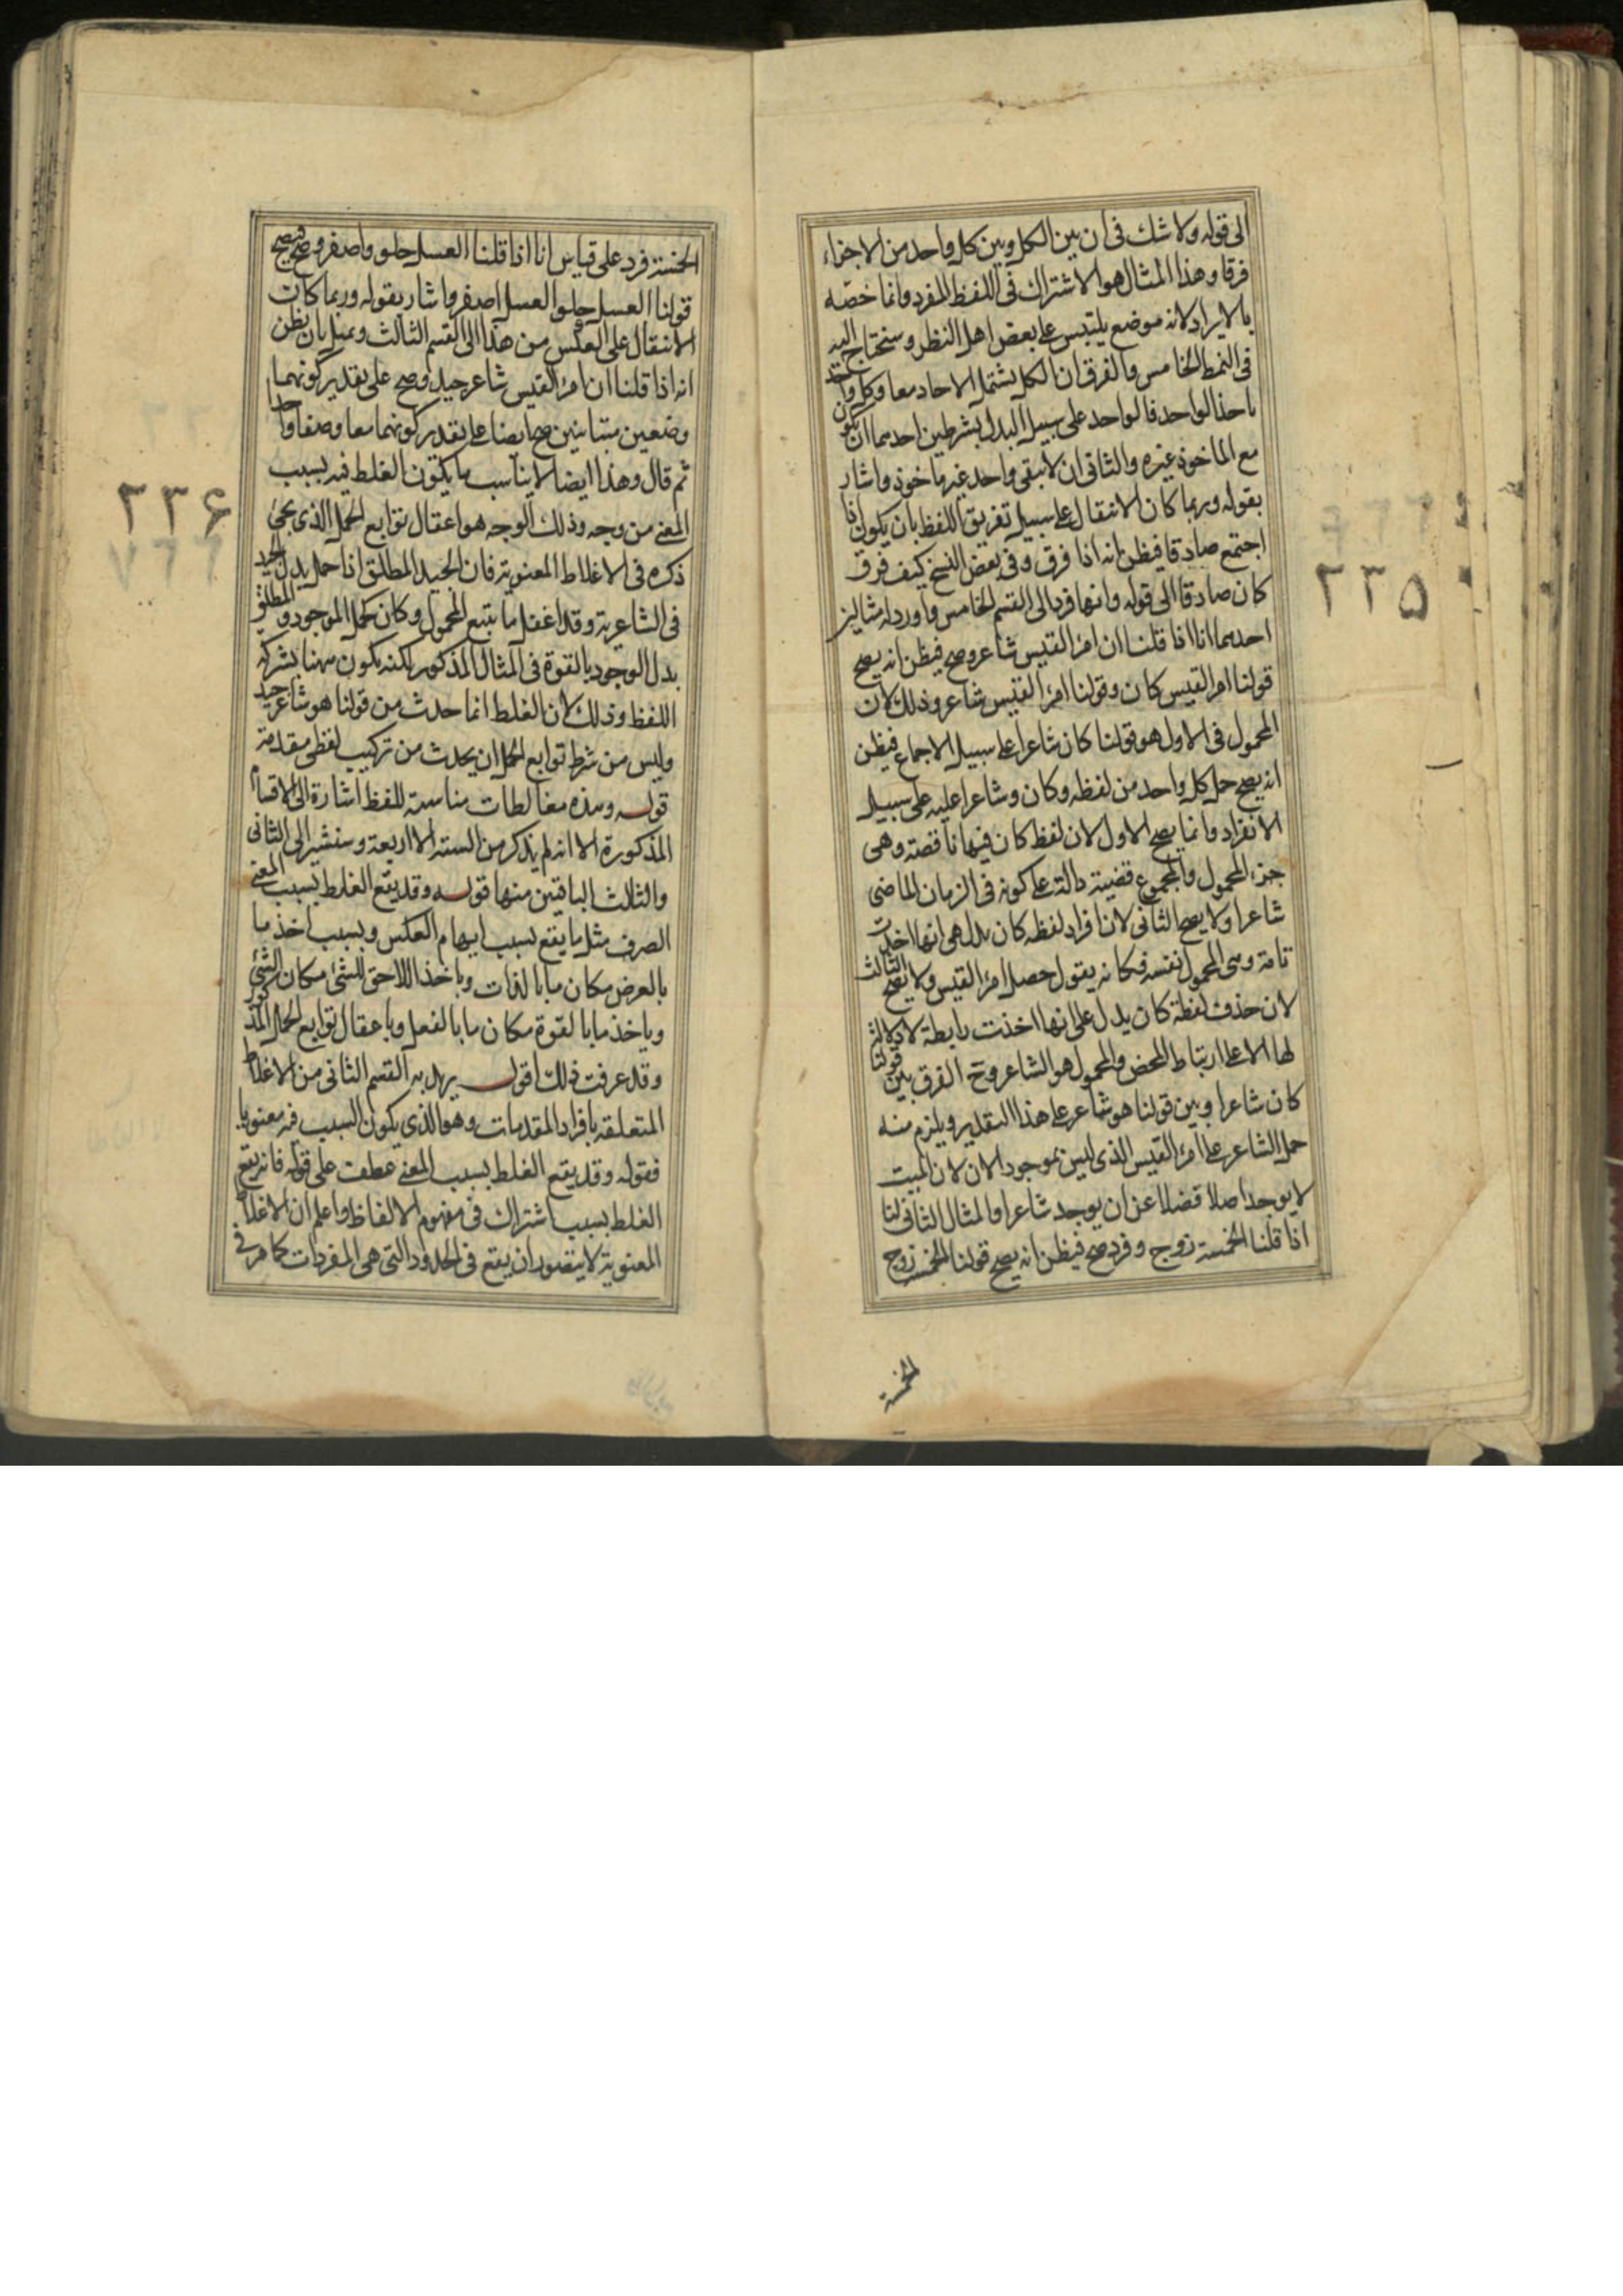 الى قوله ولا شك فى ان بين الكل وبين كل واحد من الاجزاء
فرقا وهذا المثال هو الاشتراك فى اللفظ المفرد وانما خصّه
بالايراد لانه موضع يلتبس على بعض اهل النظر وسنحتاج اليه
فى النمط الخامس والفرق ان الكل يشتمل الاحاد معا وكل واحد
ياخذ الواحد فالواحد على سبيل البدل بشرطين احدهما ان يكون
مع الماخوذ غيره والثانى ان لا يبقى واحد غير ماخوذ واشار
بقوله وربما كان الانتقال على سبيل تفريق اللفظ بان يكون اذا
اجتمع صادقا فيظن انه اذا فرق وفى بعض النسخ كيف فرق
كان صادقا الى قوله وانها فرد الى القسم الخامس واورد له مثالين
احدهما انا اذا قلنا ان امرا القيس شاعر وصح فيظن انه يصح
قولنا امر القيس كان وقولنا امرا القيس شاعر وذلك لان
المحمول فى الاول هو قولنا كان شاعرا على سبيل الاجماع فيظن
انه يصح حمل كل واحد من لفظه وكان وشاعرا عليه على سبيل
الانفراد وانما يصح الاول لان لفظ كان فيها ناقصة وهى
جزء المحمول والمجموع قضية دالة على كونه فى الزمان الماضى
شاعرا ولا يصح الثانى لان افراد لفظه كان يدل هى انها اخذت
تامة وهى المحمول نفسه فكانه يقول حصل امرا القيس ولا يصح الثالث
لان حذف لفظة كان يدل على انها اخذت رابطة لا دلالة
لها الا على ارتباط المحض والمحمول هو الشاعر وح الفرق بين قولنا
كان شاعرا وبين قولنا هو شاعر على هذا التقدير ويلزم منه
حمل الشاعر على امرا القيس الذى ليس بموجود الان لان الميت
لا يوجد اصلا فضلا عن ان يوجد شاعرا والمثال الثانى لنا
اذا قلنا الخمسة زوج وفرد صح فيظن انه يصح قولنا الخمسة زوج
الخمسة
٢٣٥
الخمسة فرد على قياس انا اذا قلنا العسل حلو واصفر وصح فيصح
قولنا العسل حلو العسل اصفر واشار بقوله وربما كان
الانتقال على العكس من هذا الى القسم الثالث وتمثل بان يظن
انه اذا قلنا ان امرا القيس شاعر جيد وصح على تقدير كونهما
وضعين متباينين صح ايضا على تقدير كونهما معا وصفا واحدا
ثم قال وهذا ايضا لا يناسب ما يكون الغلط فيه بسبب
المعنى من وجه وذلك الوجه هو اعقال توابع الحمل الذى يجئ
ذكره فى الاغلاط المعنوية فان الجيد المطلق اذا حمل بدل الجيد
فى الشاعرية وقد اغفل ما يتبع المحمول وكان كحمل الموجود المطلق
بدل الموجود بالقوة فى المثال المذكور لكنه يكون ههنا بشركة
اللفظ وذلك لان الغلط انما حدث من قولنا هو شاعر جيد
وليس من شرط توابع الحمل ان يحدث من تركيب لفظى مقدمة
قوله وهذه مغالطات مناسبة للفظ اشارة الى الاقسام
المذكورة الا انه لم يذكر من الستة الا اربعة وسنشير الى الثانى
والثالث الباقيين منها قوله وقد يقع الغلط بسبب المعنى
الصرف مثل ما يقع بسبب ايهام العكس وبسبب اخذ ما
بالعرض مكان ما بالذات وباخذ اللاحق للشئ مكان الشئ
وياخذ ما بالقوة مكان ما بالفعل وباعقال توابع الحمل المذكور
وقد عرفت ذلك اقول يريد به القسم الثانى من الاغلاط
المتعلقه بافراد المقدمات وهو الذى يكون السبب فيه معنويا
فقوله وقد يقع الغلط بسبب المعنى عطف على قوله فانه يقع
الغلط بسبب اشتراك فى مفهوم الالفاظ واعلم ان الاغلاط
المعنوية لا يتصور ان يقع فى الحدود التى هى المفردات كما مر فى
٢٣۶